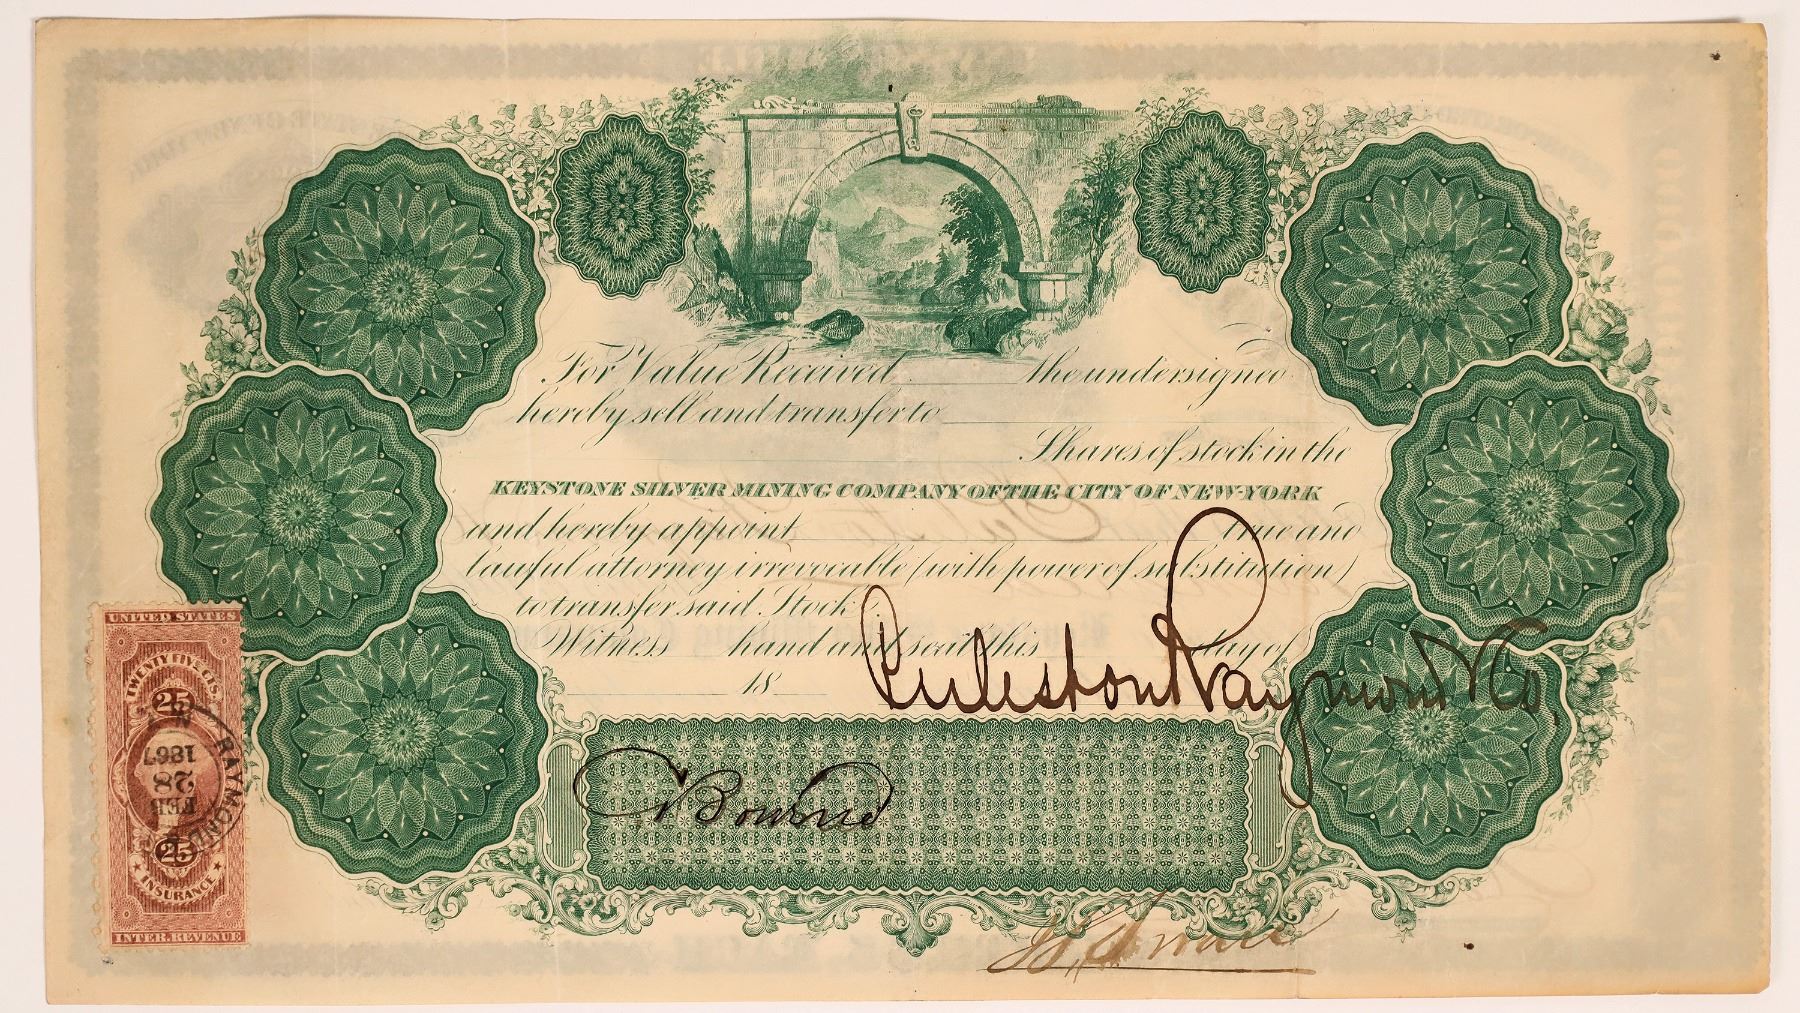 For Value Received the undersigned
hereby sell and transfer to
Shares of stock in the
KEYSTONE SILVER MINING COMPANY OF THE CITY OF NEW-YORK
and hereby appoint true and
lawful attorney irrevocable (with power of substitution)
to transfer said Stock.
Witness hand and seal this day of
18
Raymond & Co.
UNITED STATES
TWENTY FIVE CTS.
25
RAYMOND
N.Y.
FEB
28
1867
25
INSURANCE
INTER. REVENUE